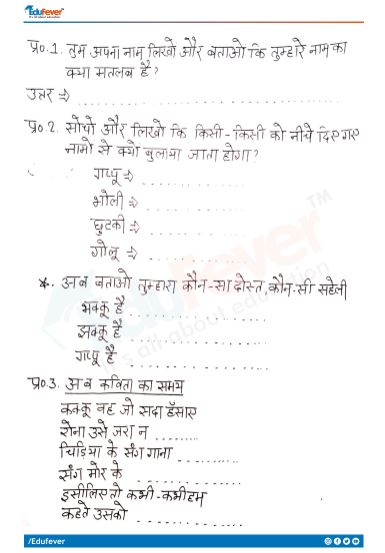 Edufever
प्र०.1. तुम अपना नाम लिखो और बताओ कि तुम्हारे नाम का
क्या मतलब है?
उत्तर ⇒ ..............................
प्र०.2. सोचो और लिखो कि किसी-किसी को नीचे दिए गए
नामो से क्यो बुलाया जाता होगा?
गप्पू ⇒ ..............
भोली ⇒ ..............
छुटकी ⇒ ..............
गोलू ⇒ ..............
*. अब बताओ तुम्हारा कौन-सा दोस्त, कौन-सी सहेली
भक्कू है ..................
झक्कू है ..................
गप्पू है ..................
Edufever™
it's all about education
प्र० 3. अब कविता का समय
कक्कू वह जो सदा हँसाए
रोना उसे जरा न .........
चिडिया के संग गाना ..........
संग मोर के ..........
इसीलिए तो कभी-कभी हम
कहते उसको ..........
/Edufever